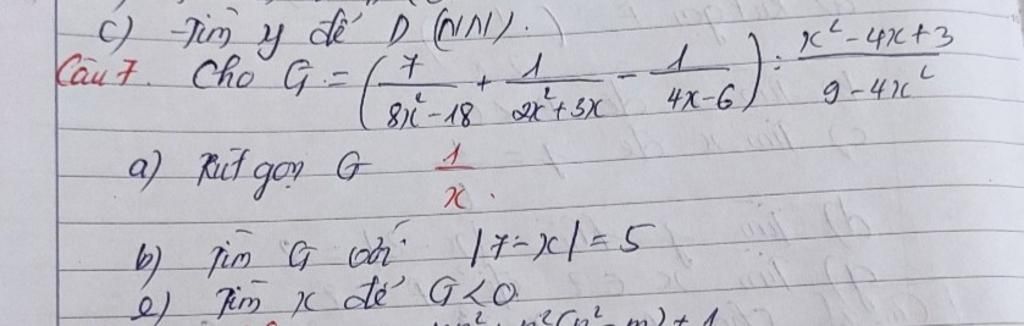 c) Tìm y để D (NN).
Câu 7. Cho G = (7/(8x²-18) + 1/(2x²+3x) - 1/(4x-6)) : (x²-4x+3)/(9-4x²)
a) Rút gọn G 1/x.
b) Tìm G với |7-x| = 5
e) Tìm x để G<0